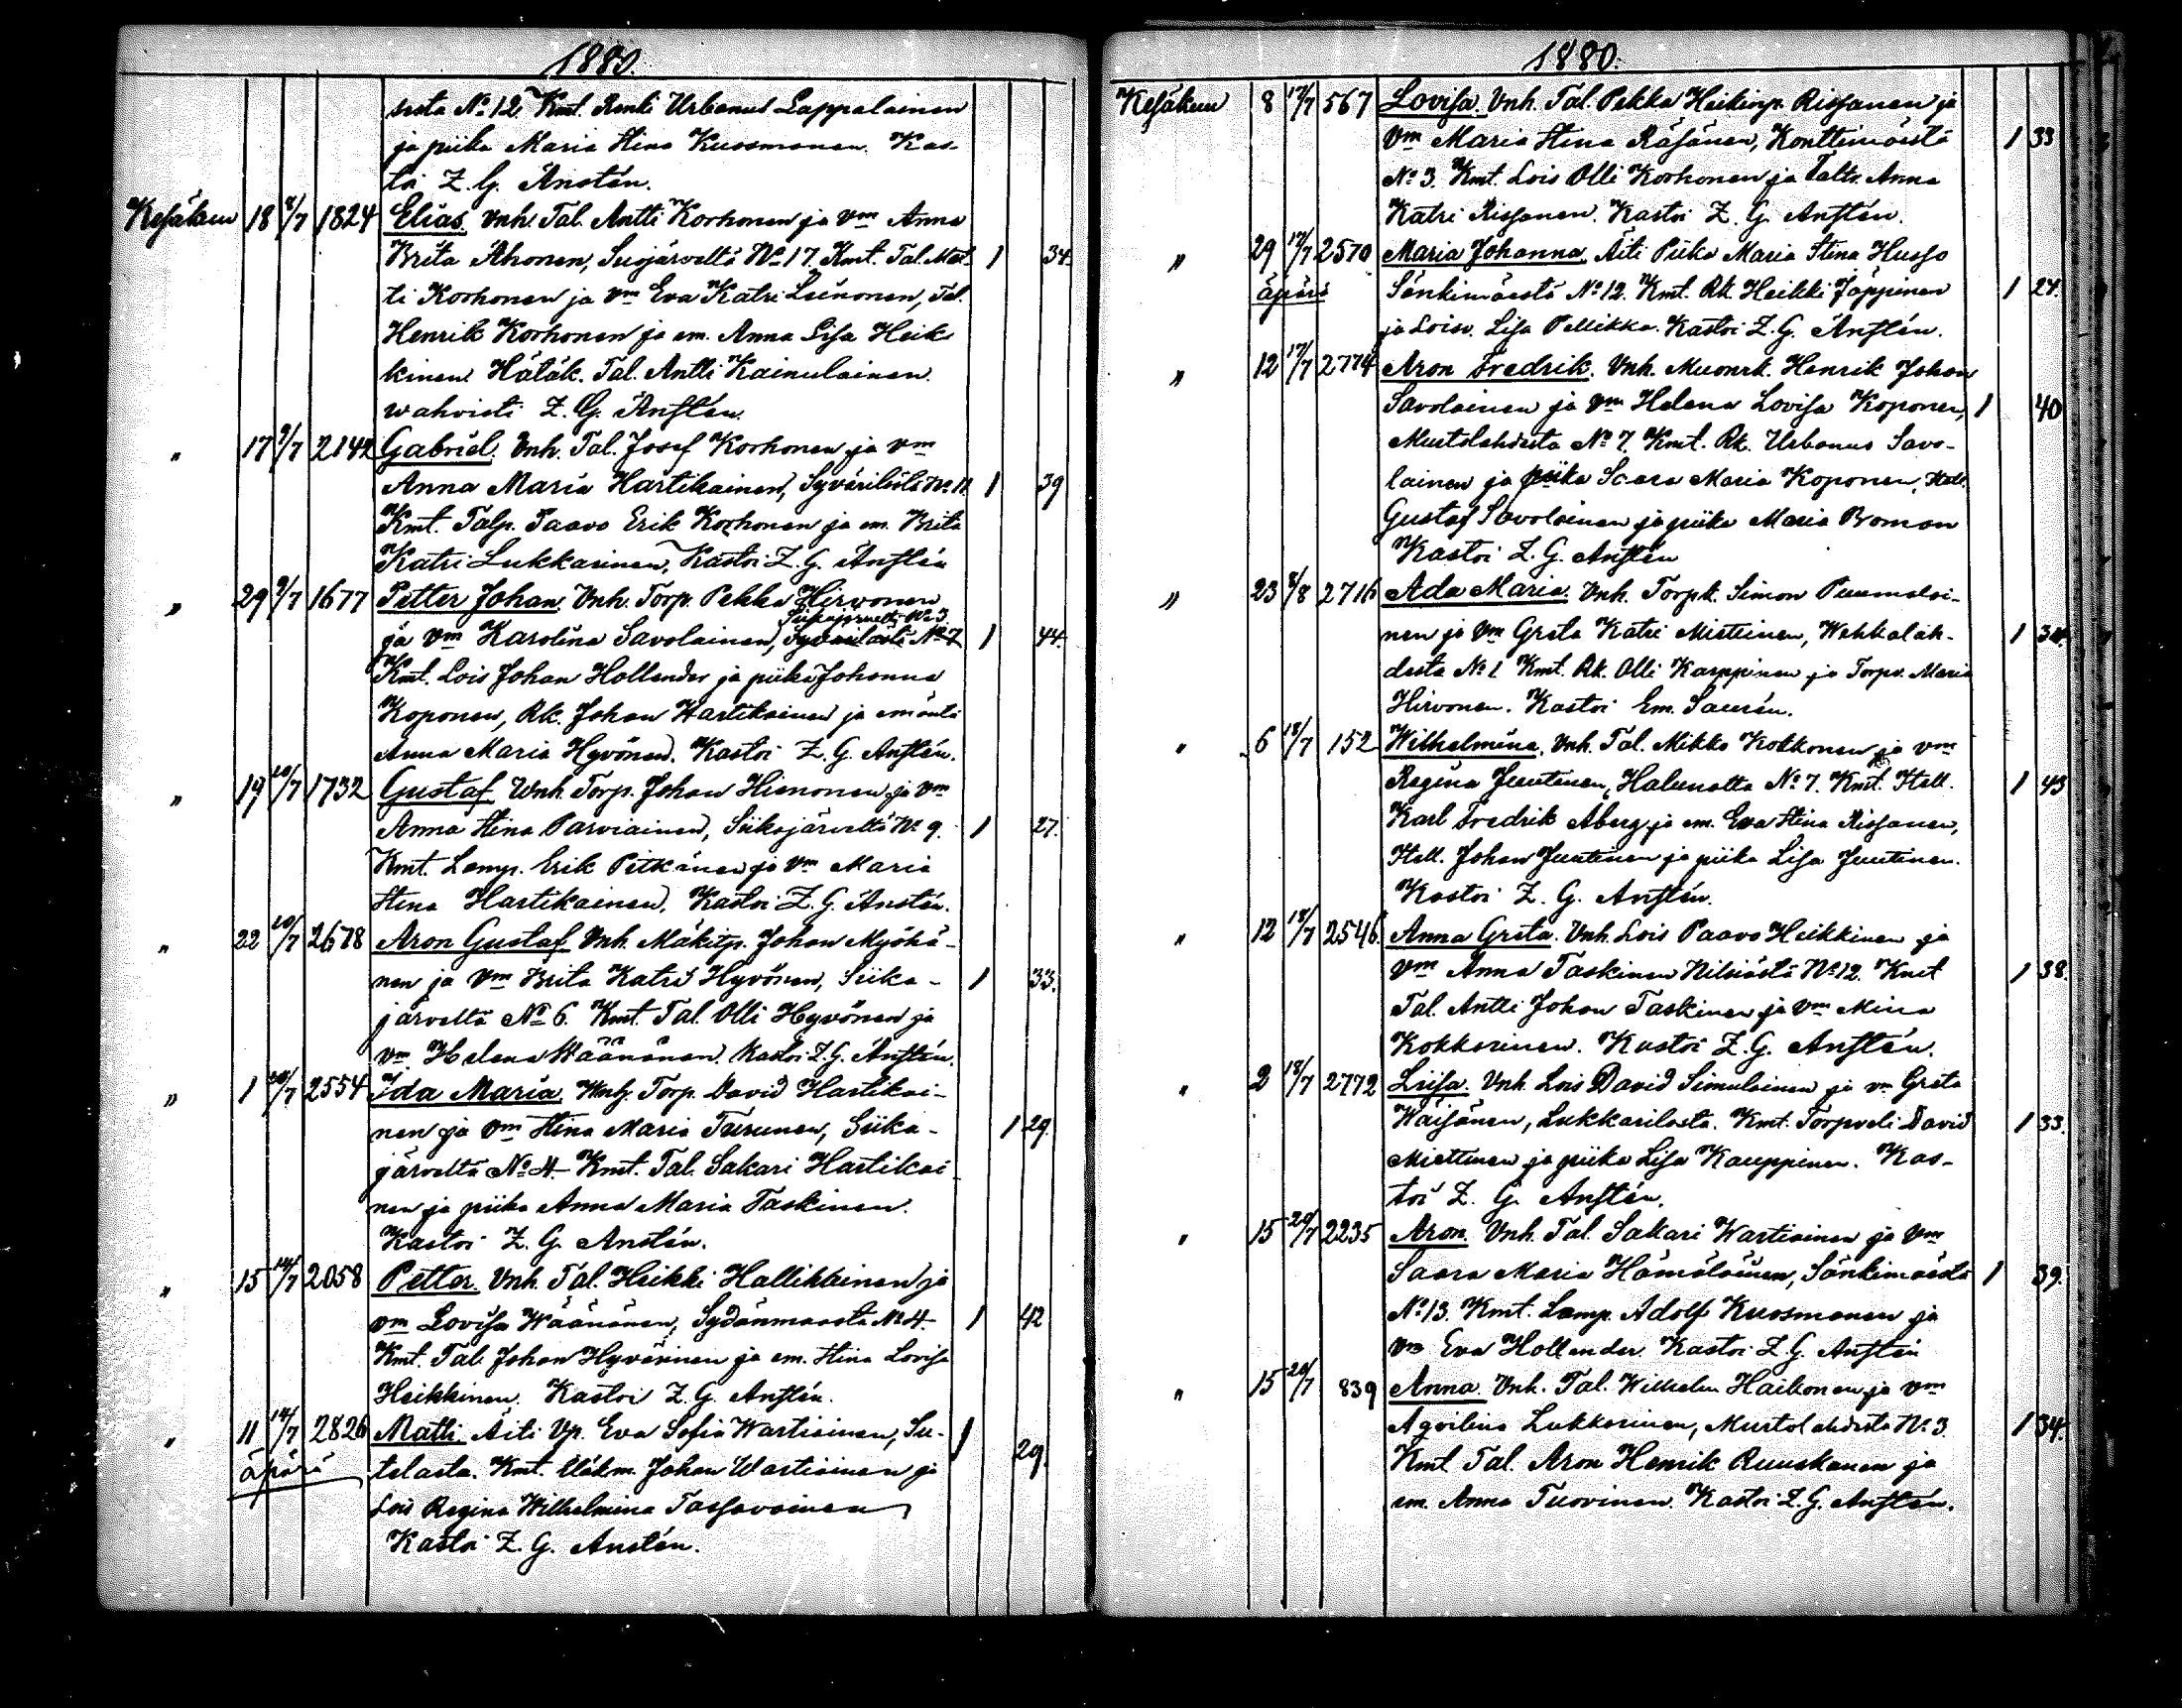 1880.
srsta No 12. Kmt. Renki Urbanus Lappalainen
ja piika Maria Stina Kuosmonen. Kas-
toi Z. G. Ansten.
Kesäkuu 18 8/7 1824 Elias. Vnh. Tal. Antti Korhonen ja vm Anna
Brita Ahonen, Suojärveltä No 17. Kmt. Tal. Mat- 1 34.
ti Korhonen ja vm Eva Katri Leinonen, Tal.
Henrik Korhonen ja em. Anna Lisa Heik
kinen. Hätäk. Tal. Antti Kainulainen.
wahvisti Z. G. Anstén.
" 17 9/7 2142 Gabriel. Vnh. Tal. Josef Korhonen ja vm
Anna Maria Hartikainen, Syvärilästä No 11. 1 39
Kmt. Talp. Paavo Erik Korhonen ja em. Brita
Katri Lukkarinen, Kastoi Z. G. Anstén
" 29 9/7 1677 Petter Johan. Vnh. Torp. Pekka Hirvonen
Siikajärveltä No 3
ja vm Karolina Savolainen, Syvärilästä No 7 1 44.
Kmt. Lois Johan Hollender ja piika Johanna
Koponen, Rk. Johan Hartikainen ja emäntä
Anna Maria Hyvönen. Kastoi Z. G. Anstén.
" 19 10/7 1732 Gustaf. Vnh. Torp. Johan Hienonen ja vm
Anna Stina Parviainen, Siikajärveltä No 9. 1 27.
Kmt. Lamp. Erik Pitkänen ja vm Maria
Stina Hartikainen. Kastoi Z. G. Anstén.
" 22 10/7 2678 Aron Gustaf. Vnh. Mäkitp. Johan Myöhä-
nen ja vm Brita Katri Hyvönen, Siika- 1 33.
järveltä No 6. Kmt. Tal. Olli Hyvönen ja
vm Helena Wäänänen. Kastoi Z. G. Anstén.
" 1 10/7 2554 Ida Maria. Vnh. Torp. David Hartikai-
nen ja vm Stina Maria Turunen, Siika- 1 29.
järveltä No 4. Kmt. Tal. Sakari Hartikai
nen ja piika Anna Maria Taskinen.
Kastoi Z. G. Anstén.
" 15 14/7 2058 Petter. Vnh. Tal. Heikki Hallikkainen ja
vm Lovisa Wäänänen, Sydänmaasta No 4. 1 42
Kmt. Tal. Johan Hyvärinen ja em. Stina Lovisa
Heikkinen. Kastoi Z. G. Anstén.
" 11 14/7 2826 Matti. Äiti Vp. Eva Sofia Wartiainen, Su- 1 29.
äpärä telasta. Kmt. Johan Wartiainen ja
Lois Regina Wilhelmina Tassavainen
Kastoi Z. G. Anstén.
1880.
Kesäkuu 8 17/7 567 Lovisa. Vnh. Tal. Pekka Heikinp. Rissanen ja
vm Maria Stina Räsänen, Konttimäestä 1 33
No 3. Kmt. Lois Olli Korhonen ja Taltr. Anna
Katri Rissanen. Kastoi Z. G. Anstén.
" 29 17/7 2570 Maria Johanna. Äiti Piika Maria Stina Husso
äpärä Sänkimäestä No 12. Kmt. Rk. Heikki Jäppinen 1 24.
ja Loisv. Lisa Pellikka. Kastoi Z. G. Anstén.
" 12 17/7 2774 Aron Fredrik. Vnh. Muonrk. Henrik Johan
Savolainen ja vm Helena Lovisa Koponen, 1 40
Mustolahdesta No 7. Kmt. Rk. Urbanus Savo-
lainen ja piika Saara Maria Koponen, Itell.
Gustaf Savolainen ja piika Maria Boman
Kastoi Z. G. Anstén
" 23 8/8 2716 Ada Maria. Vnh. Torpk. Simon Puumalai-
nen ja vm Greta Katri Mistinen, Wehkalah- 1 34.
desta No 1. Kmt. Rk. Olli Karppinen ja Torpv. Maria
Hirvonen. Kastoi Em. Saurén.
" 6 18/7 152 Wilhelmina. Vnh. Tal. Mikko Kokkonen ja vm
Regina Juutinen, Halunalta No 7. Kmt. Itell. 1 43
Karl Fredrik Åberg ja em. Eva Stina Rissanen,
Itell. Johan Juutinen ja piika Lisa Juutinen.
Kastoi Z. G. Anstén.
" 12 18/7 2546 Anna Greta. Vnh. Lois Paavo Heikkinen ja
vm Anna Taskinen Nilsiästä No 12. Kmt 1 38.
Tal. Antti Johan Taskinen ja vm Mina
Kokkarinen. Kastoi Z. G. Anstén.
" 2 18/7 2772 Liisa. Vnh. Lois David Simulainen ja vm Greta
Wäisänen, Lukkarilasta. Kmt. Torpveli David 1 33.
Miettinen ja piika Lisa Kauppinen. Kas-
toi Z. G. Anstén.
" 15 20/7 2235 Aron. Vnh. Tal. Sakari Wartiainen ja vm
Saara Maria Hämäläinen, Sänkimäestä 1 39.
No 13. Kmt. Lamp. Adolf Kuosmonen ja
vm Eva Hollender. Kastoi Z. G. Anstén
" 15 20/7 839 Anna. Vnh. Tal. Wilhelm Haikonen ja vm
Agvilina Lukkarinen, Mustolahdesta No 3. 1 34.
Kmt Tal. Aron Henrik Ruuskanen ja
em. Anna Tuovinen. Kastoi Z. G. Anstén.